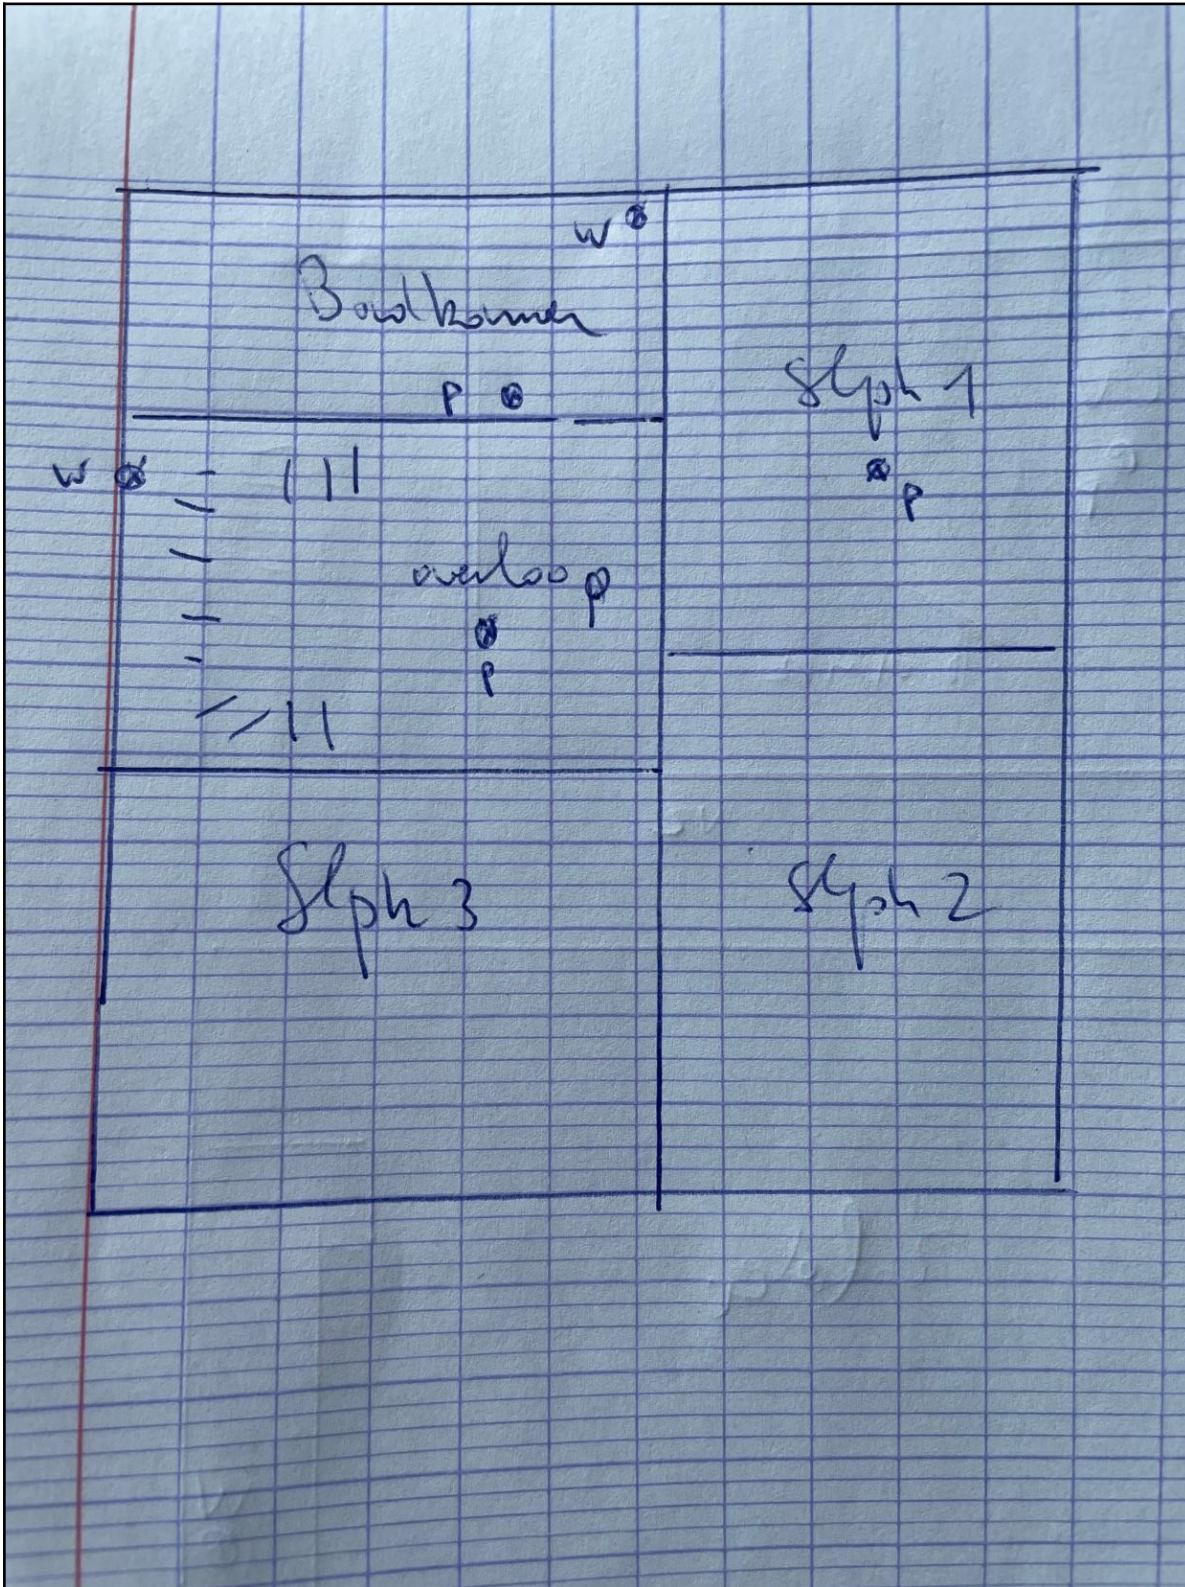 W
Badkamer
P
Slpk 1
W
P
overloop
P
Slpk 3
Slpk 2